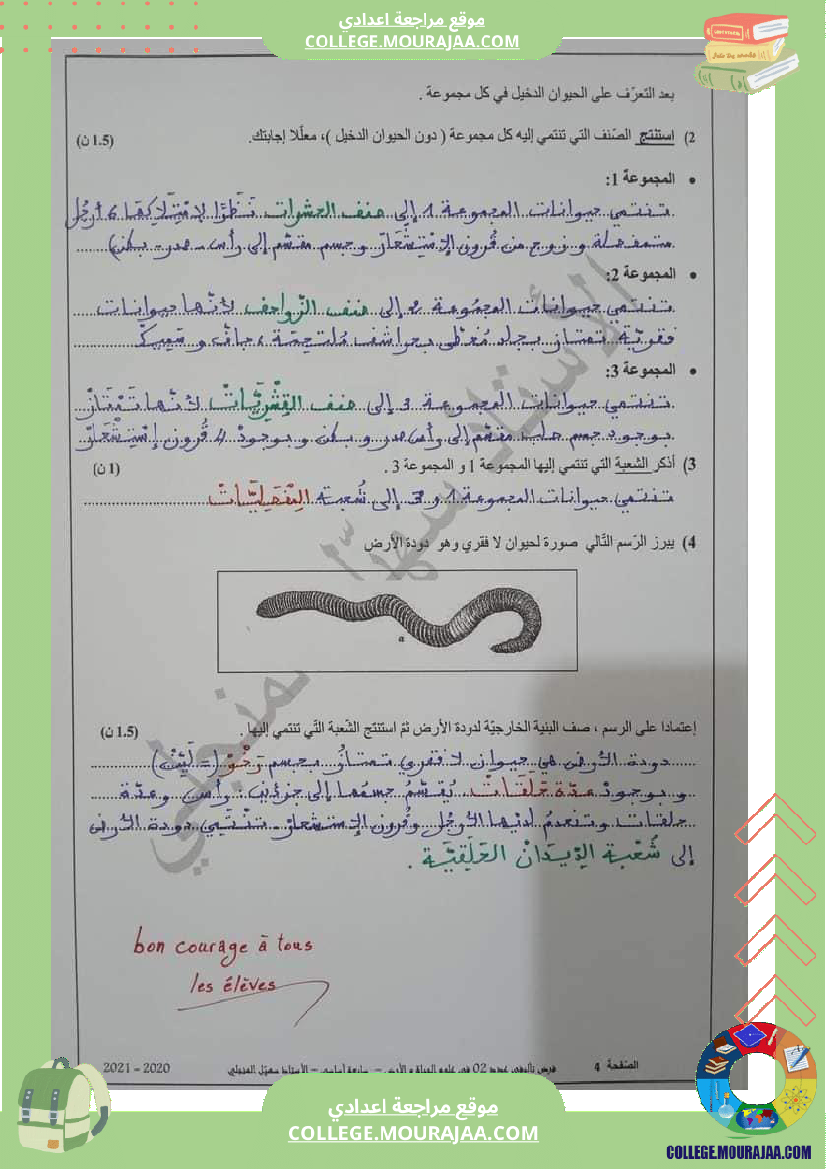 موقع مراجعة اعدادي
COLLEGE.MOURAJAA.COM
بعد التعرّف على الحيوان الدخيل في كل مجموعة .
2) إستنتج الصّنف التي تنتمي إليه كل مجموعة ( دون الحيوان الدخيل )، معلّلا إجابتك. (1.5 ن)
• المجموعة 1:
تنتمي حيوانات المجموعة 1 إلى صنف الحشرات نظرًا لامتلاكها 6 أرجل
متمفصلة و زوج من قرون الإستشعار و جسم مقسم إلى رأس - صدر - بطن)
• المجموعة 2:
تنتمي حيوانات المجموعة 2 إلى صنف الزّواحف لأنّها حيوانات
فقريّة تمتاز بجلد مُغطّى بحراشف مُلتحمة، جافّ و سميك
• المجموعة 3:
تنتمي حيوانات المجموعة 3 إلى صنف القِشْرِيَّاتْ لأنّها تَمْتَازْ
بوجود جسم صلب مقسم إلى رأس صدر و بطن و بوجود 4 قُرون إسْتِشْعَارْ
3) أذكر الشعبة التي تنتمي إليها المجموعة 1 و المجموعة 3 . (1 ن)
تنتمي حيوانات المجموعة 1 و 3 إلى شُعبة المِفْصَلِيَّاتْ
4) يبرز الرّسم التّالي صورة لحيوان لا فقري وهو دودة الأرض
a
إعتمادا على الرسم ، صف البنية الخارجيّة لدودة الأرض ثمّ استنتج الشّعبة التّي تنتمي إليها . (1.5 ن)
دودة الأرض هي حيوان لا فقري تمتازُ بجسم رَخْوْ (= لَيِّنْ)
و بوجود عدّة حَلَقَاتْ. يُقسَّمُ جسمُها إلى جزئين: رأس وعدّة
حلقات وتنعدمُ لديها الأرجُل وقُرون الإستشعار. تنْتَمي دودة الأرض
إلى شُعْبة الدِّيدَانْ الحَلَقِيَّة .
bon courage à tous
les élèves
الصّفحة 4
2020 - 2021
موقع مراجعة اعدادي
COLLEGE.MOURAJAA.COM
COLLEGE.MOURAJAA.COM